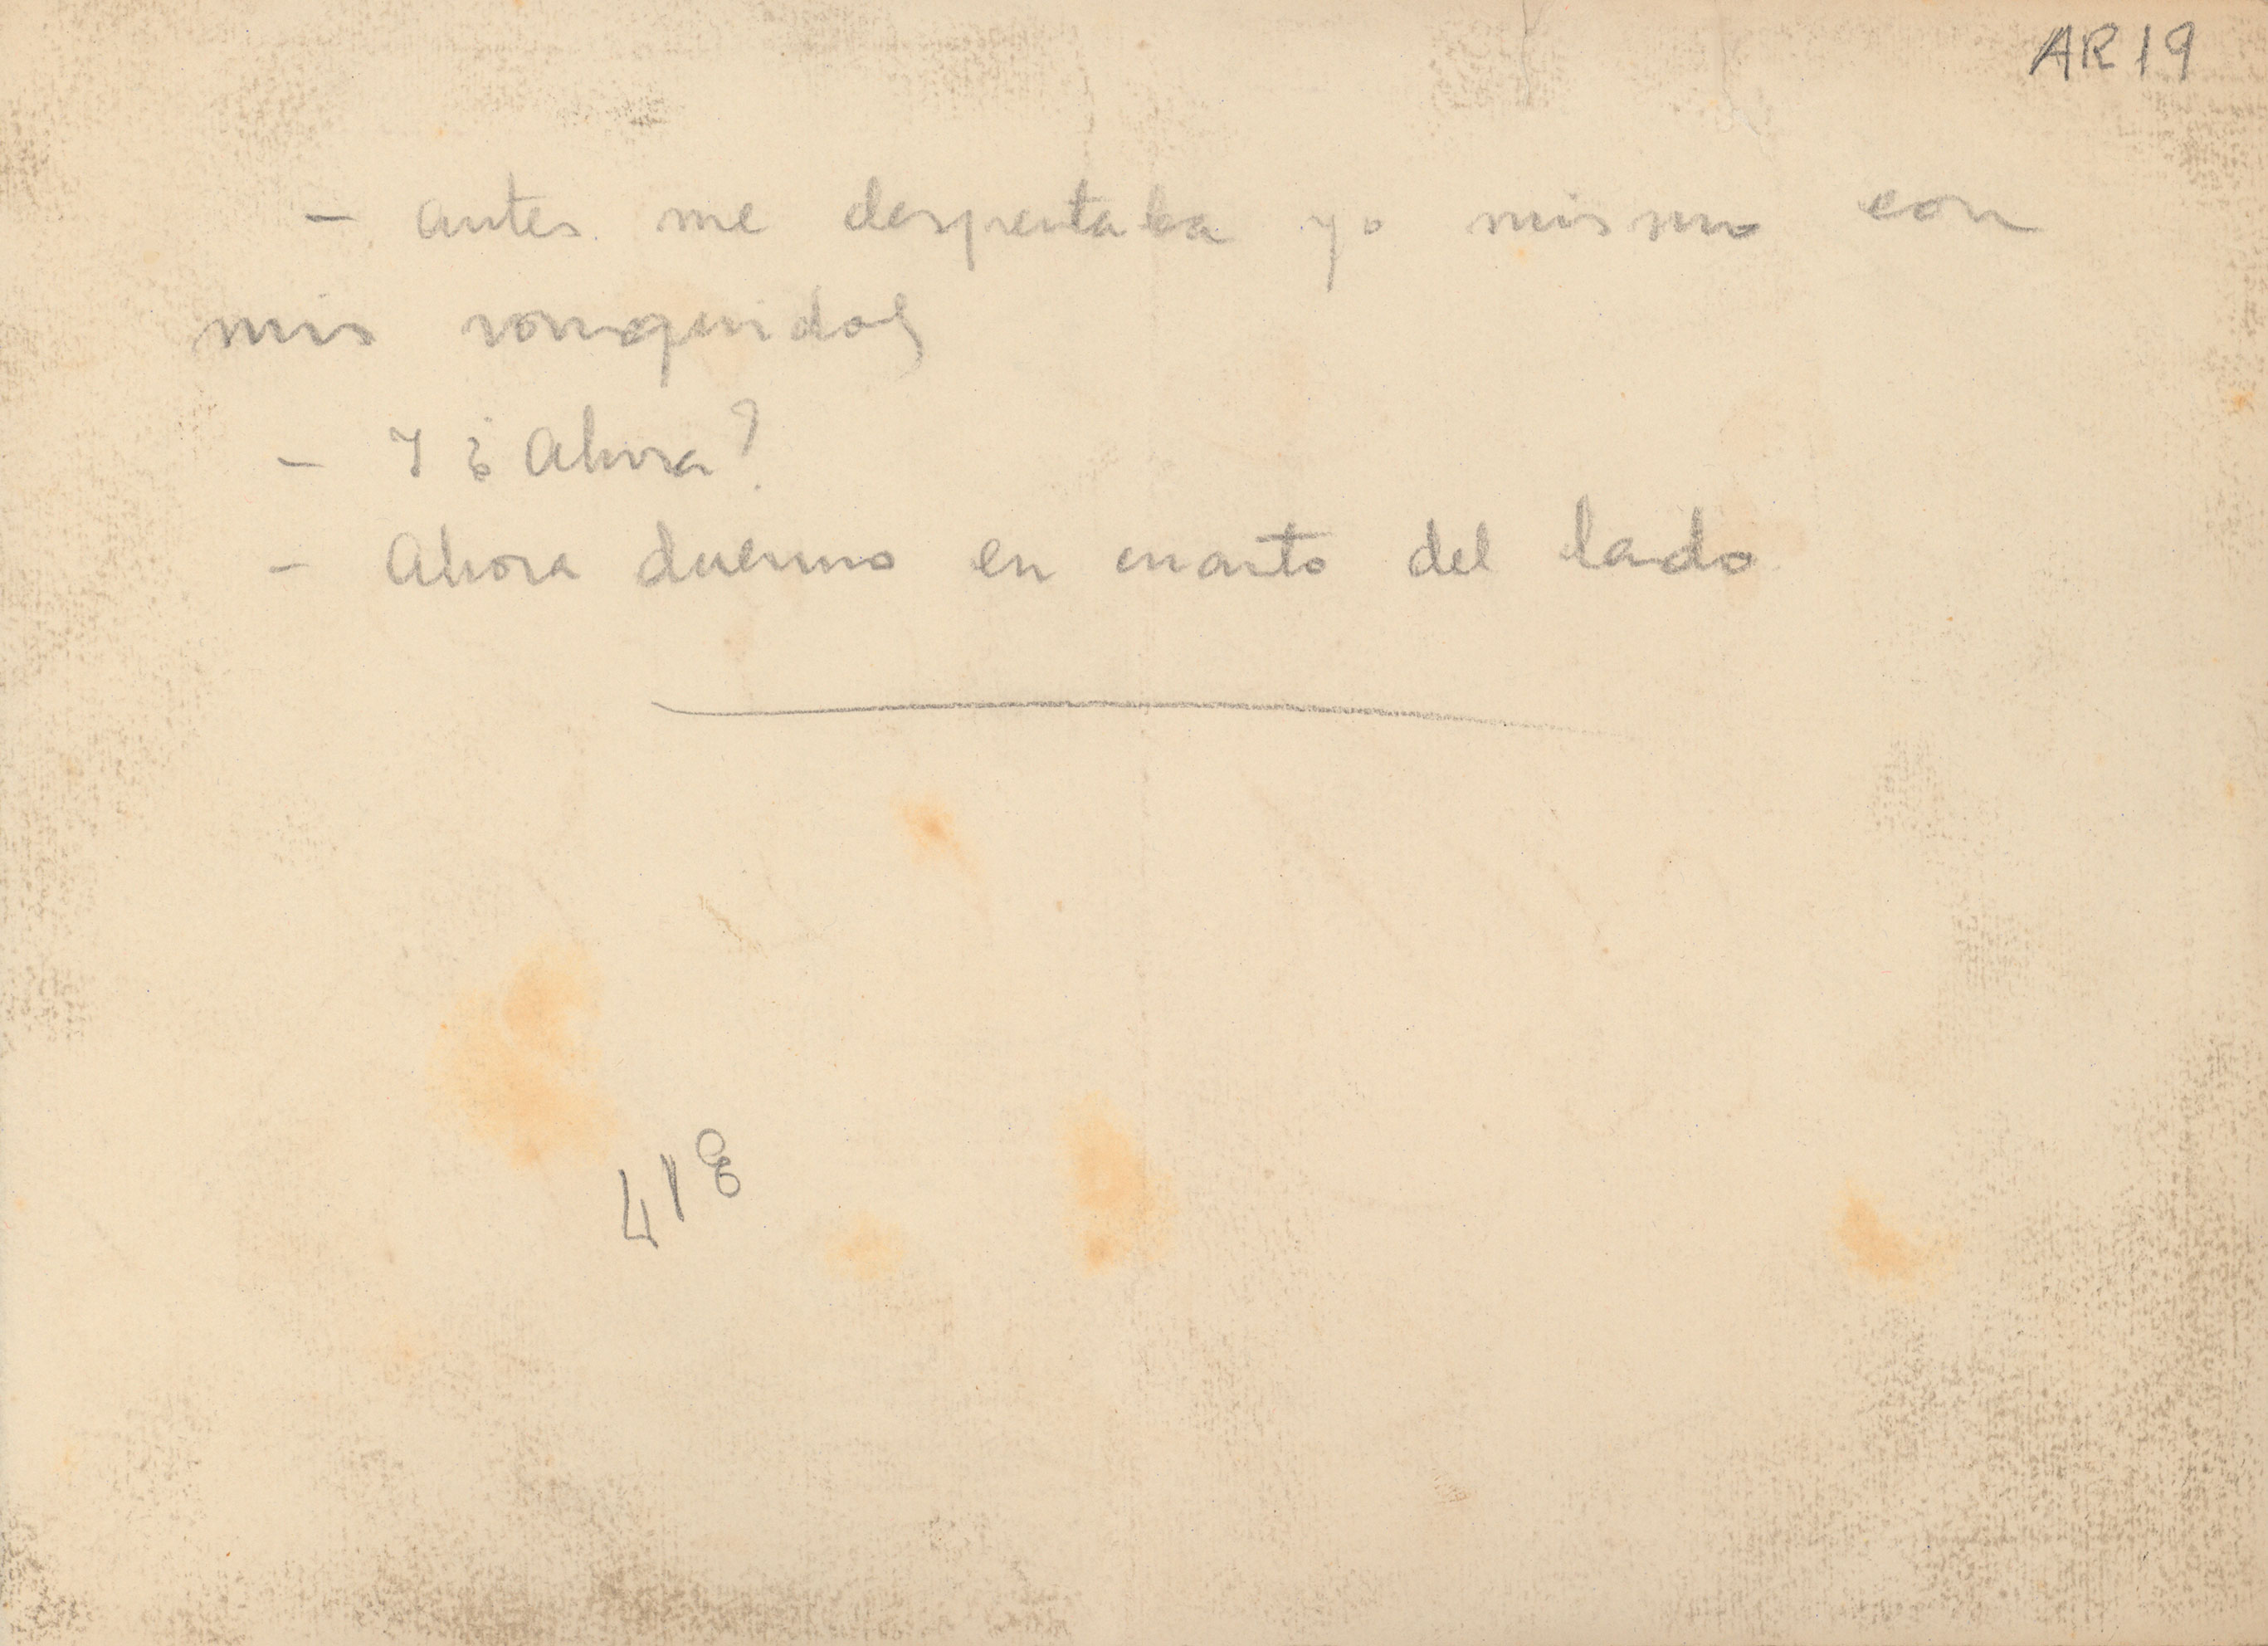 AR19
- antes me despertaba yo mismo con
mis ronquidos
- Y ¿ Ahora?
- Ahora duermo en cuarto del lado
418